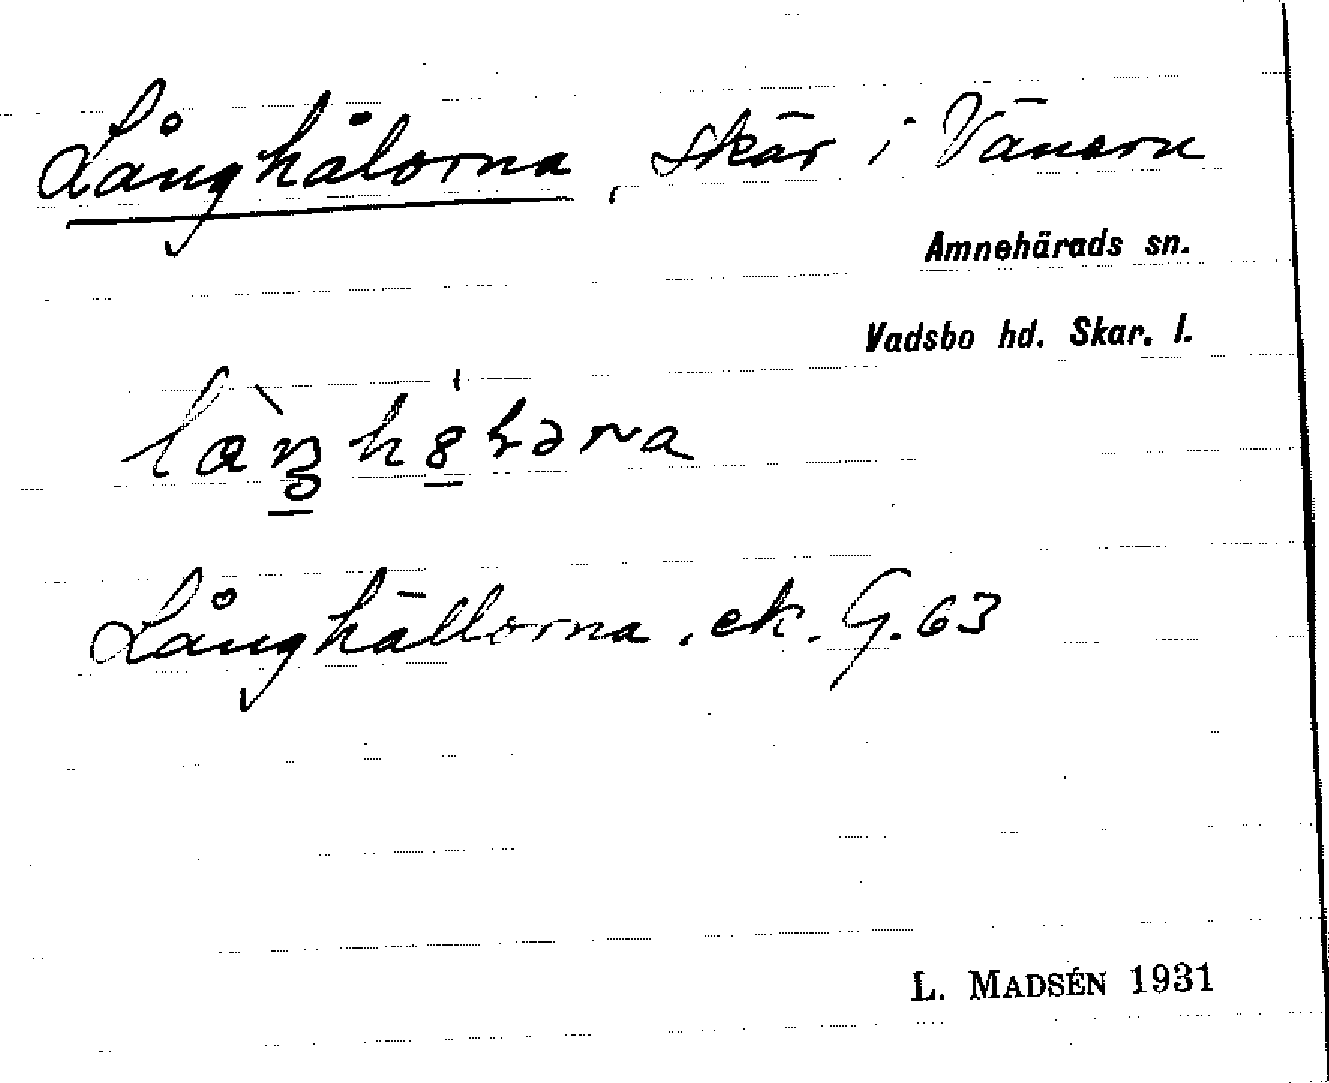 Långhålorna, skär i Vänern
Amnehärads sn.
Vadsbo hd. Skar. l.
Långhällorna. ek. G. 63
L. MADSÉN 1931